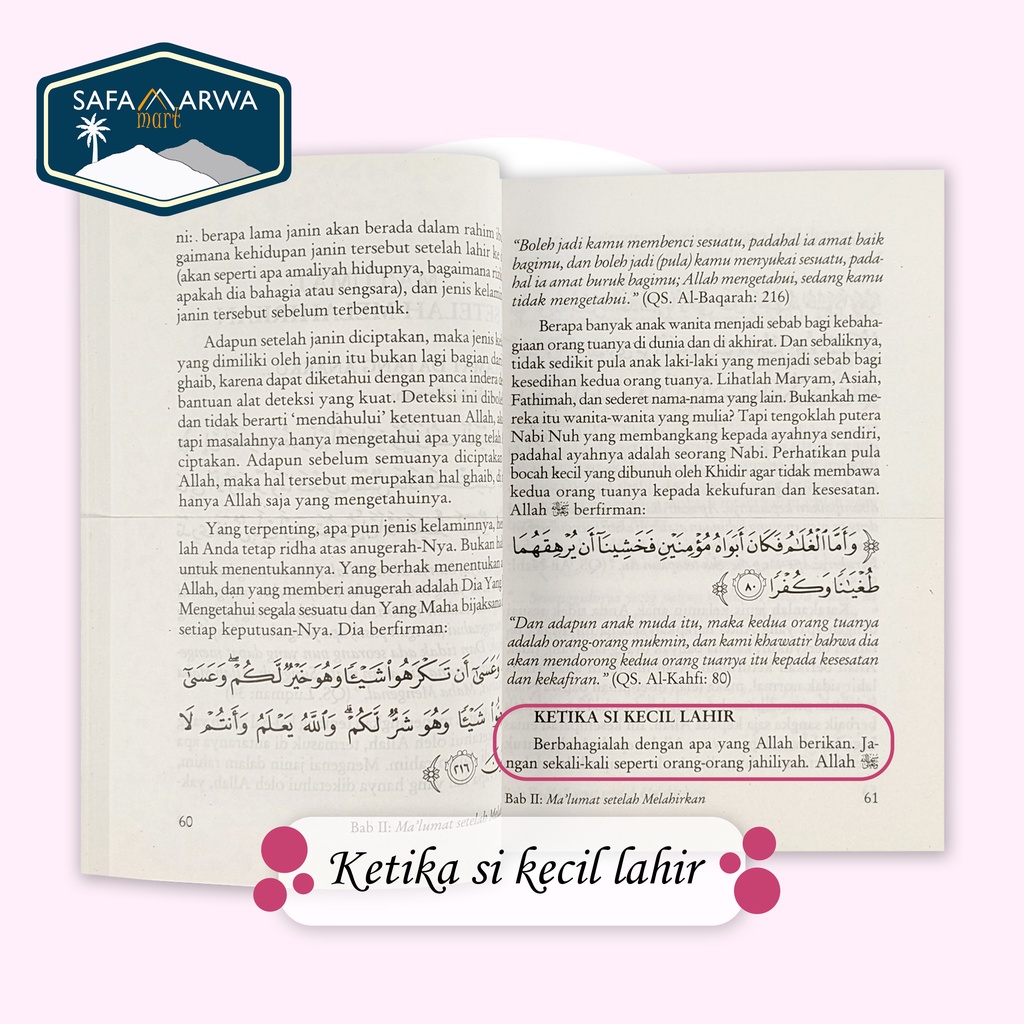 SAFA MARWA
mart
ni:. berapa lama janin akan berada dalam rahim
gaimana kehidupan janin tersebut setelah lahir
(akan seperti apa amaliyah hidupnya, bagaimana
apakah dia bahagia atau sengsara), dan jenis
janin tersebut sebelum terbentuk.
Adapun setelah janin diciptakan, maka jenis
yang dimiliki oleh janin itu bukan lagi bagian
ghaib, karena dapat diketahui dengan panca indera
bantuan alat deteksi yang kuat. Deteksi ini
dan tidak berarti ‘mendahului’ ketentuan Allah,
tapi masalahnya hanya mengetahui apa yang
ciptakan. Adapun sebelum semuanya
Allah, maka hal tersebut merupakan hal ghaib,
hanya Allah saja yang mengetahuinya.
Yang terpenting, apa pun jenis kelaminnya,
lah Anda tetap ridha atas anugerah-Nya. Bukan
untuk menentukannya. Yang berhak menentukan
Allah, dan yang memberi anugerah adalah Dia Yang
Mengetahui segala sesuatu dan Yang Maha
setiap keputusan-Nya. Dia berfirman:
وَعَسَىٰٓ أَن تَكْرَهُوا۟ شَيْـًٔا وَهُوَ خَيْرٌ لَّكُمْ ۖ وَعَسَىٰٓ
شَيْـًٔا وَهُوَ شَرٌّ لَّكُمْ ۗ وَٱللَّهُ يَعْلَمُ وَأَنتُمْ لَا
﴿٢١٦﴾
60
Bab II: Ma’lumat setelah
“Boleh jadi kamu membenci sesuatu, padahal ia amat baik
bagimu, dan boleh jadi (pula) kamu menyukai sesuatu, pada-
hal ia amat buruk bagimu; Allah mengetahui, sedang kamu
tidak mengetahui.” (QS. Al-Baqarah: 216)
Berapa banyak anak wanita menjadi sebab bagi kebaha-
giaan orang tuanya di dunia dan di akhirat. Dan sebaliknya,
tidak sedikit pula anak laki-laki yang menjadi sebab bagi
kesedihan kedua orang tuanya. Lihatlah Maryam, Asiah,
Fathimah, dan sederet nama-nama yang lain. Bukankah me-
reka itu wanita-wanita yang mulia? Tapi tengoklah putera
Nabi Nuh yang membangkang kepada ayahnya sendiri,
padahal ayahnya adalah seorang Nabi. Perhatikan pula
bocah kecil yang dibunuh oleh Khidir agar tidak membawa
kedua orang tuanya kepada kekufuran dan kesesatan.
Allah berfirman:
﴿ وَأَمَّا ٱلْغُلَـٰمُ فَكَانَ أَبَوَاهُ مُؤْمِنَيْنِ فَخَشِينَآ أَن يُرْهِقَهُمَا
طُغْيَـٰنًا وَكُفْرًا ٨٠ ﴾
“Dan adapun anak muda itu, maka kedua orang tuanya
adalah orang-orang mukmin, dan kami khawatir bahwa dia
akan mendorong kedua orang tuanya itu kepada kesesatan
dan kekafiran.” (QS. Al-Kahfi: 80)
KETIKA SI KECIL LAHIR
Berbahagialah dengan apa yang Allah berikan. Ja-
ngan sekali-kali seperti orang-orang jahiliyah. Allah
Bab II: Ma’lumat setelah Melahirkan
61
Ketika si kecil lahir